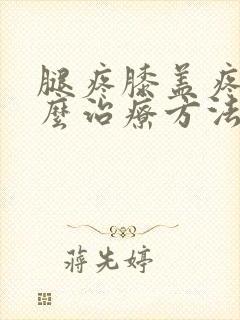 腿疼膝盖疼
麼治療方法
蒋先婷